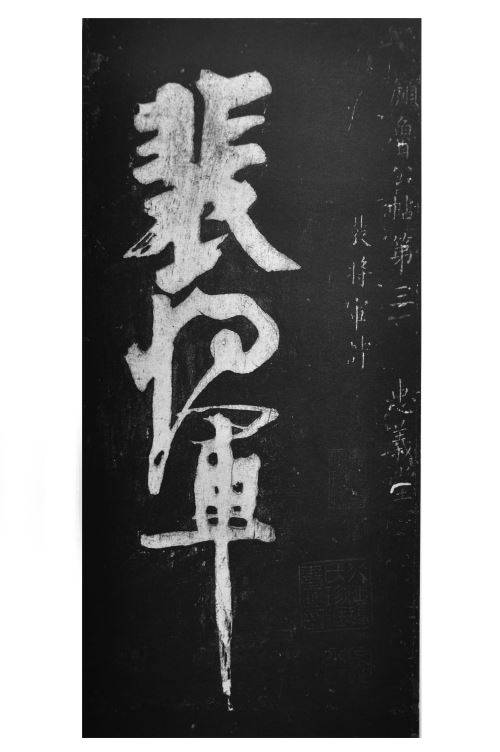 顏魯公帖第三 忠義堂
裴將軍詩
裴將軍